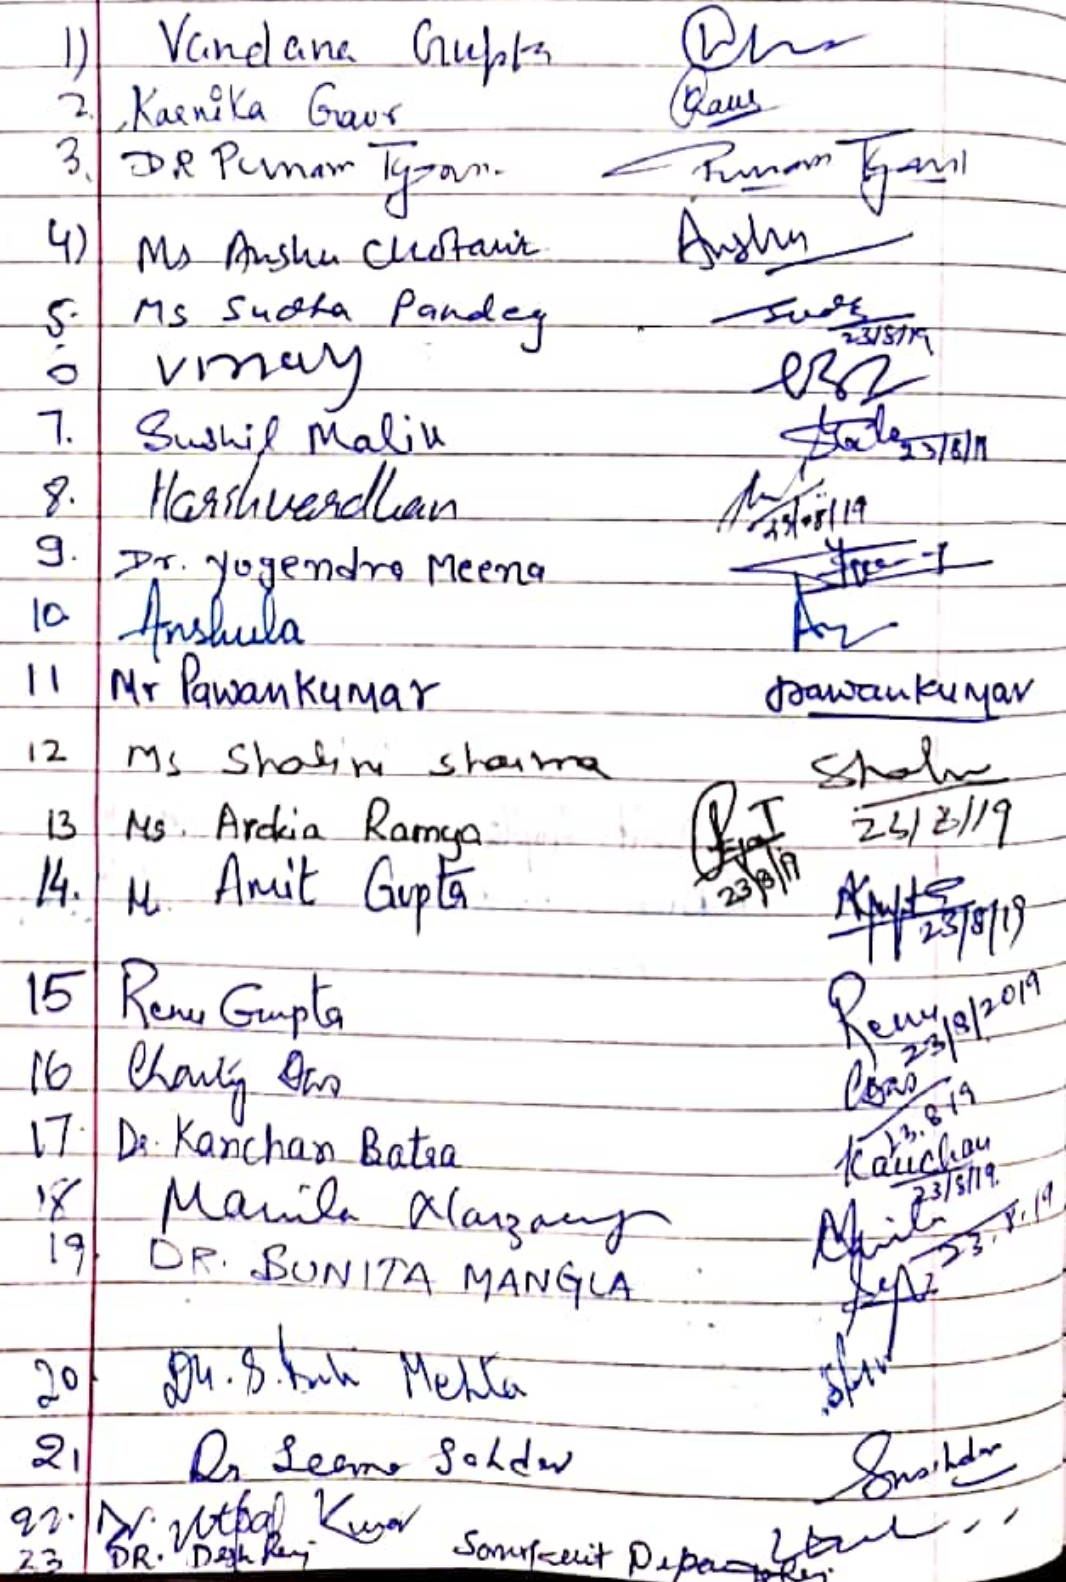 1) Vandana Gupta
2. Karnika Gaur Gaur
3. DR Punam Tyagi Punam Tyagi
4) Ms Anshu Chotani Anshu
5. Ms Sudha Pandey
23/8/19
6 Vinay
7. Sushil Malik 23/8/19
8. Harshvardhan 23/08/19
9. Dr. Yogendra Meena
10 Anshula
11 Mr Pawan Kumar Pawan Kumar
12 Ms Shalini Sharma Shalini
23/8/19
13 Ms. Ardhia Ramya
23/8/19
14. Amit Gupta Gupta
23/8/19
15 Renu Gupta Renu
23/8/2019
16 Charty Das CDas
23.8.19
17. Dr. Kanchan Batra Kanchan
23/8/19.
18 Manila Narzary Manila
23.8.19
19. DR. SUNITA MANGLA
20. Dr. S. Mehta
21 Dr Seema Sahdev
22. Dr. Utpal Kumar
23 DR. Desh Raj